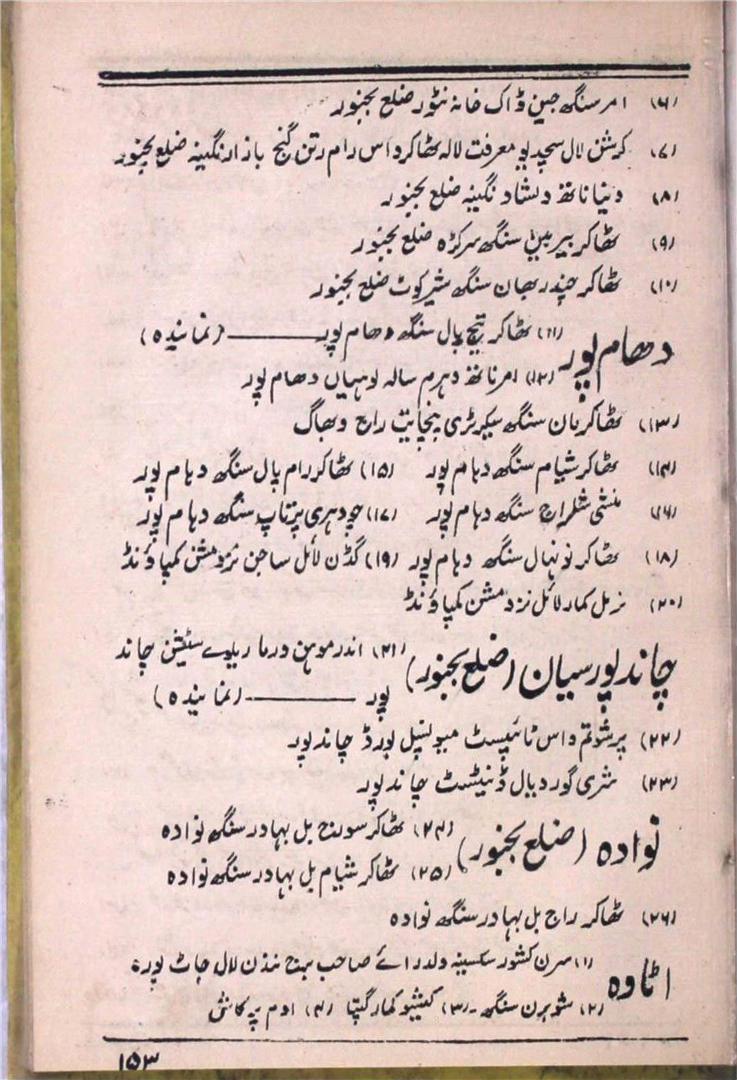 (۶) امر سنگھ جین ڈاک خانہ نٹور ضلع بجنور
(۷) کرشن لال سچدیو معرفت لالہ ٹھاکر داس رام رتن گنج بازار نگینہ ضلع بجنور
(۸) دنیا ناتھ دلشاد نگینہ ضلع بجنور
(۹) ٹھاکر بیر سنگھ سرکڑہ ضلع بجنور
(۱۰) ٹھاکر چندر بھان سنگھ شیر کوٹ ضلع بجنور
دھام پور (۱۱) ٹھاکر تیج پال سنگھ دھام پور ——— (نمائندہ)
(۱۲) امر ناتھ دہرم سالہ لوہیاں دھام پور
(۱۳) ٹھاکر بان سنگھ سیکرٹری پنچایت راج وبھاگ
(۱۴) ٹھاکر شیام سنگھ دہام پور (۱۵) ٹھاکر رام پال سنگھ دہام پور
(۱۶) منشی سنگھ دہام پور (۱۷) چودہری پرتاپ سنگھ دہام پور
(۱۸) ٹھاکر نونہال سنگھ دہام پور (۱۹) گڈن لائل ساجن نزد مشن کمپاؤنڈ
(۲۰) نرمل کمار لائل نزد مشن کمپاؤنڈ
چاند پور سیان (ضلع بجنور) (۲۱) اندر موہن ورما ریلوے سٹیشن چاند
پور ——— (نمائندہ)
(۲۲) پرشوتم داس ٹائپسٹ میونسپل بورڈ چاند پور
(۲۳) شری گور دیال ڈنٹیسٹ چاند پور
نوادہ (ضلع بجنور) (۲۴) ٹھاکر سورج بل بہادر سنگھ نوادہ
(۲۵) ٹھاکر شیام بل بہادر سنگھ نوادہ
(۲۶) ٹھاکر راج بل بہادر سنگھ نوادہ
اٹاوہ (۱) سرن کشور سکسینہ ولد رائے صاحب برج نندن لال جاٹ پورہ
(۲) شوبرن سنگھ - (۳) کیشو کمار گپتا (۴) اوم پرکاش
۱۵۳